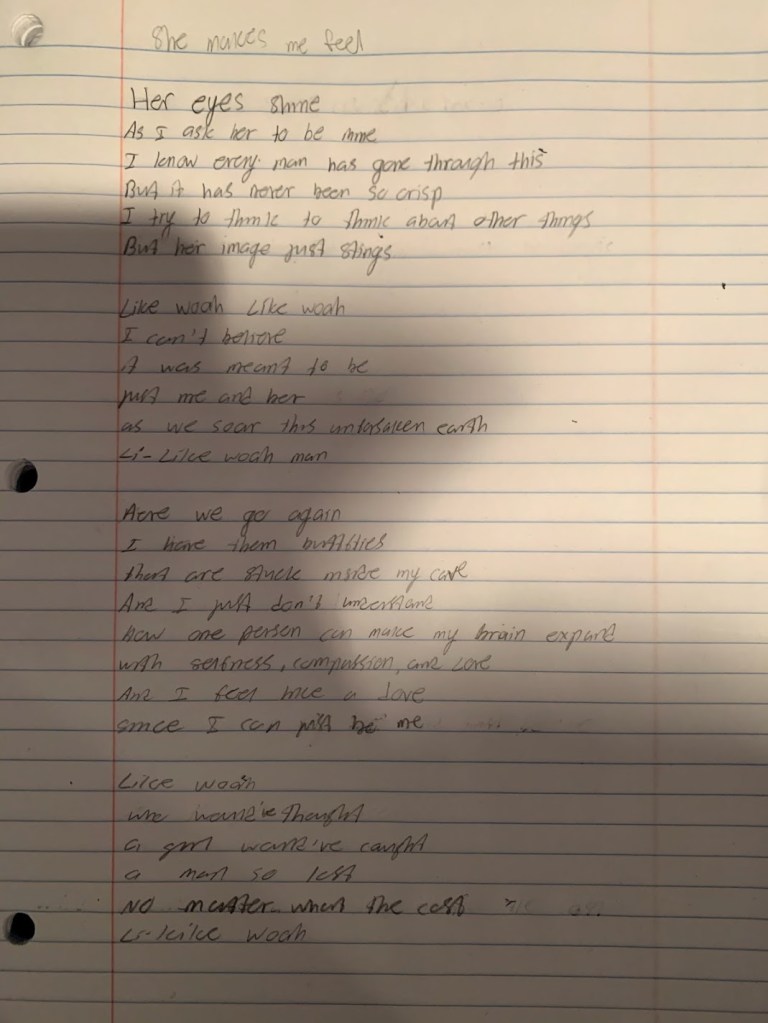 She makes me feel
Her eyes shine
As I ask her to be mine
I know every man has gone through this
But it has never been so crisp
I try to think to think about other things
But her image just stings
Like woah Like woah
I can't believe
it was meant to be
just me and her
as we soar this unforsaken earth
Li- Like woah man
Here we go again
I have them
that are stuck inside my cave
And I just don't understand
how one person can make my brain expand
with selfness, compassion, and love
And I feel like a dove
since I can just be me
Like woah
who would've thought
a girl would've caught
a man so lost
No matter what the cost
Li-Like woah